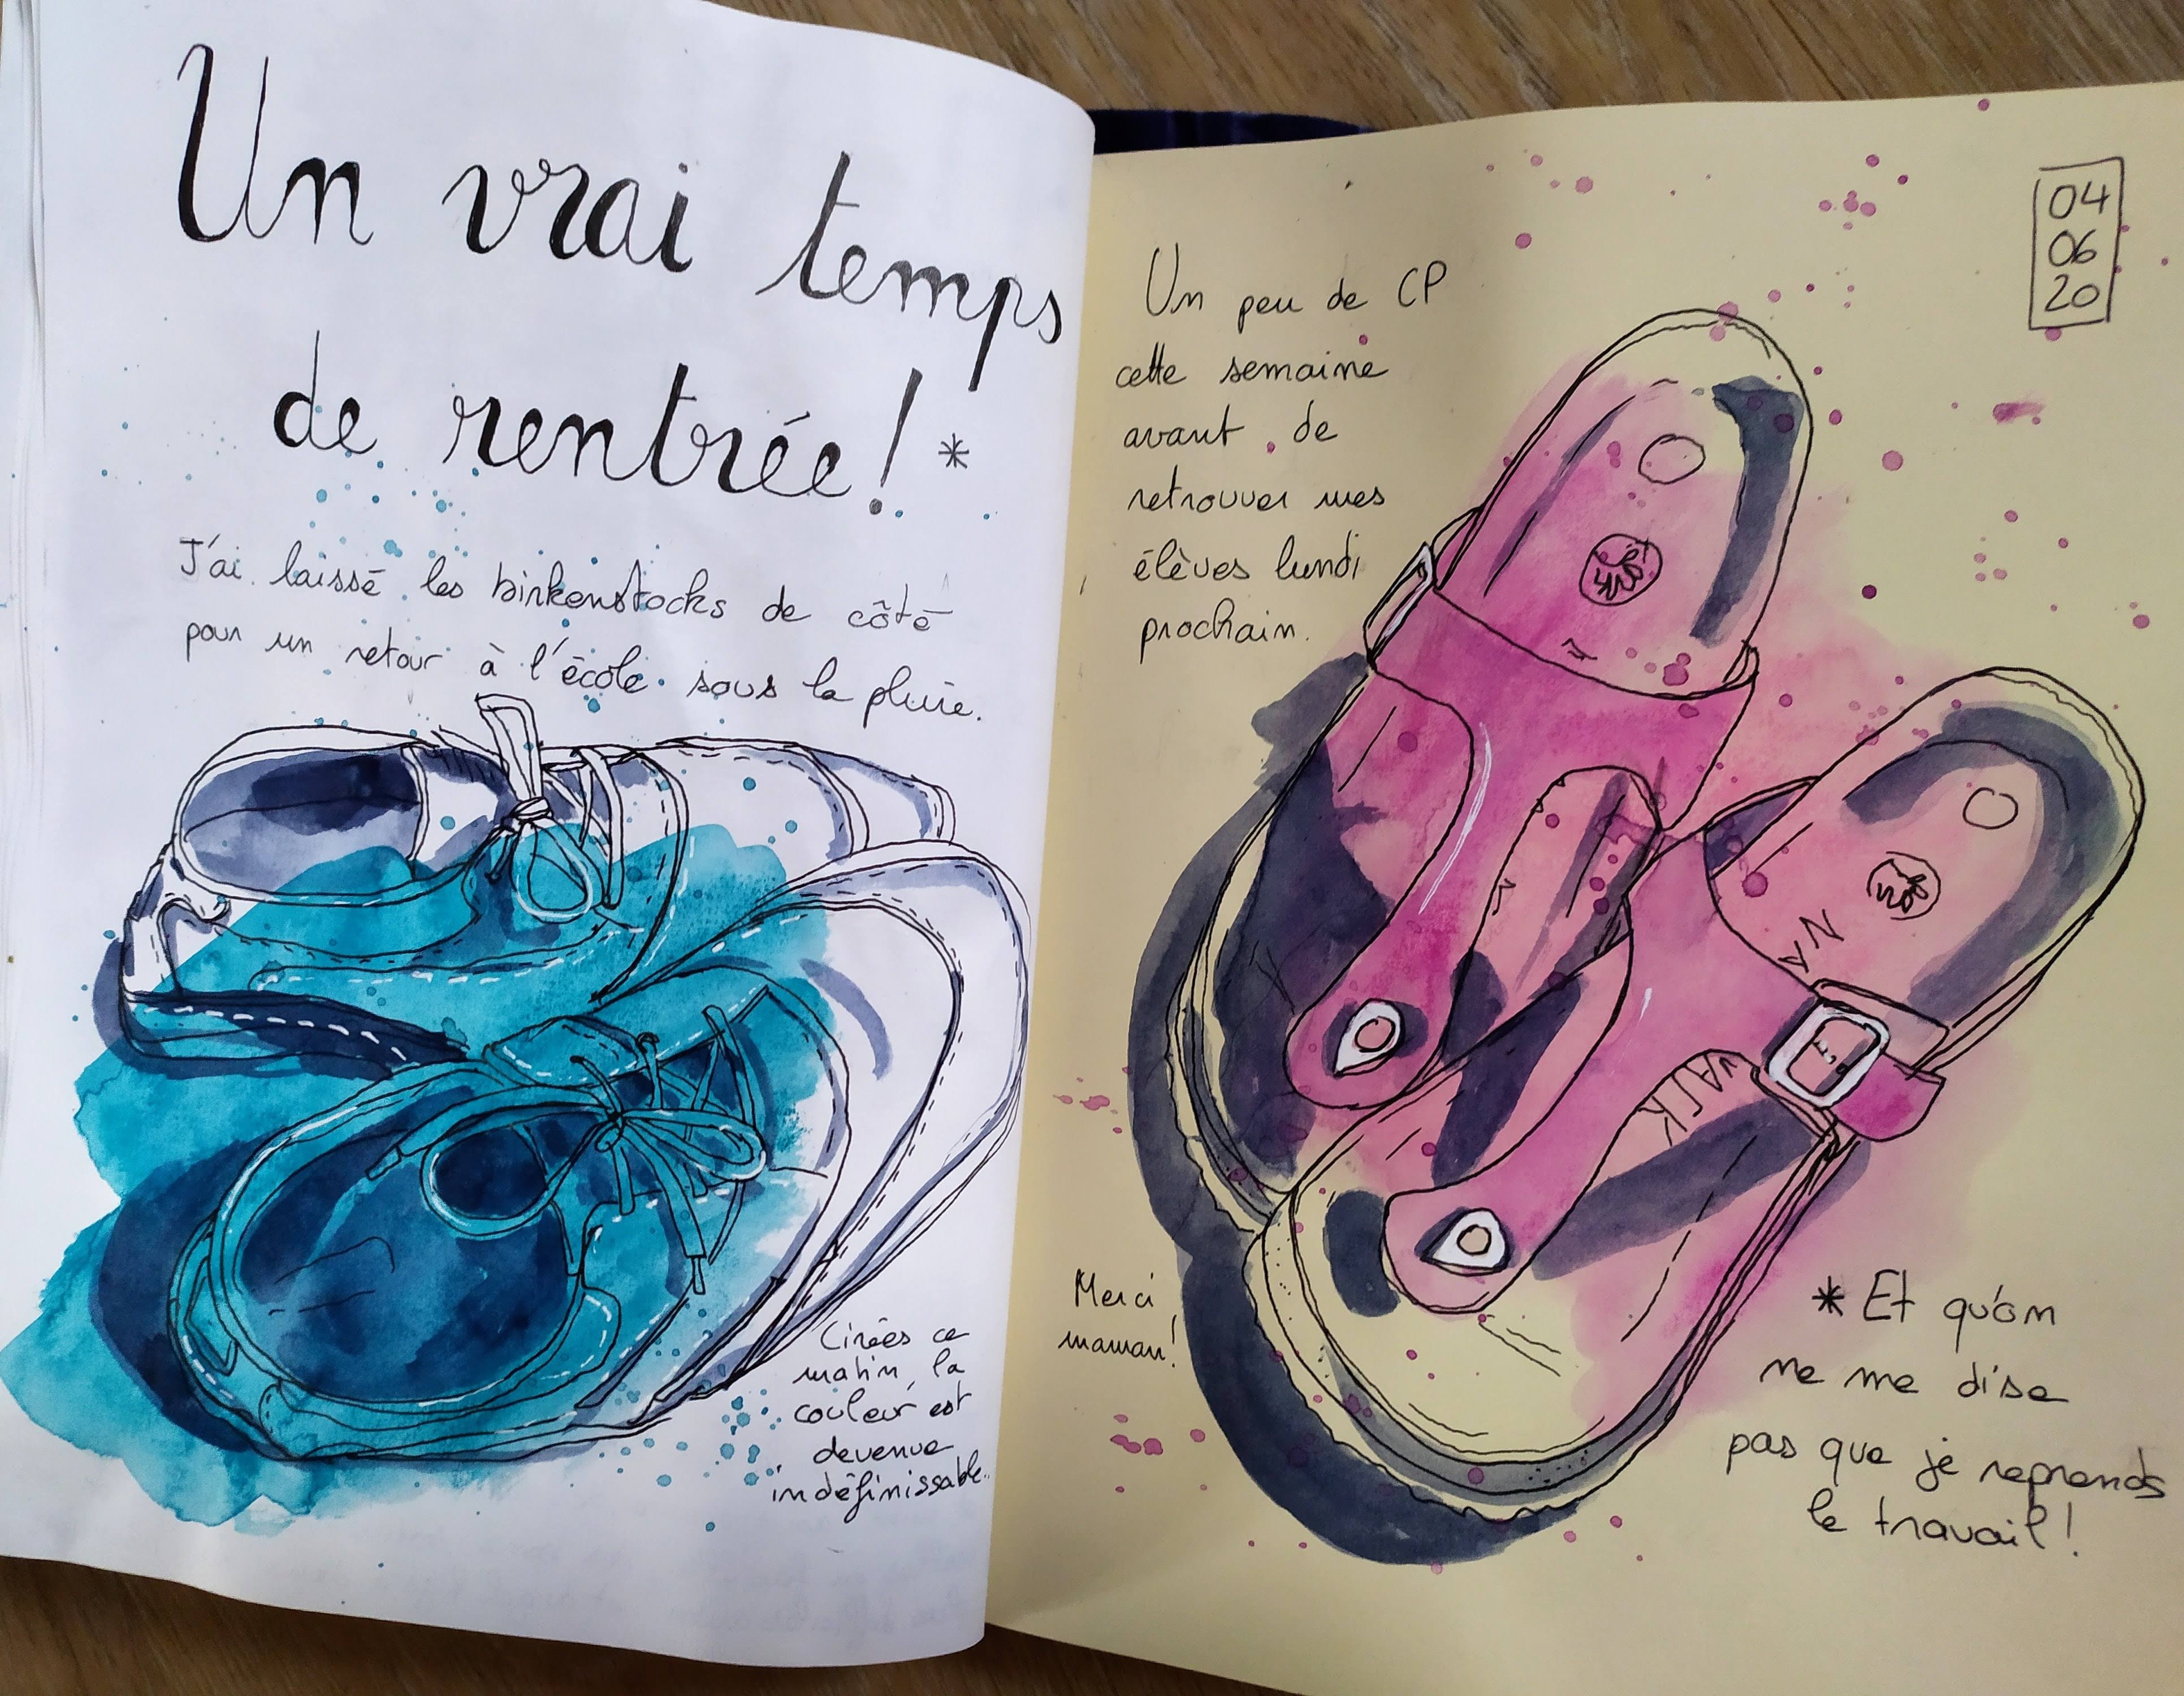 Un vrai temps
de rentrée! *
J'ai laissé les birkenstocks de côté
pour un retour à l'école sous la pluie.
Cirées ce
matin, la
couleur est
devenue
indéfinissable..
04
06
20
Un peu de CP
cette semaine
avant de
retrouver mes
élèves lundi
prochain.
WALK
Merci
maman!
* Et qu'on
ne me dise
pas que je reprends
le travail!